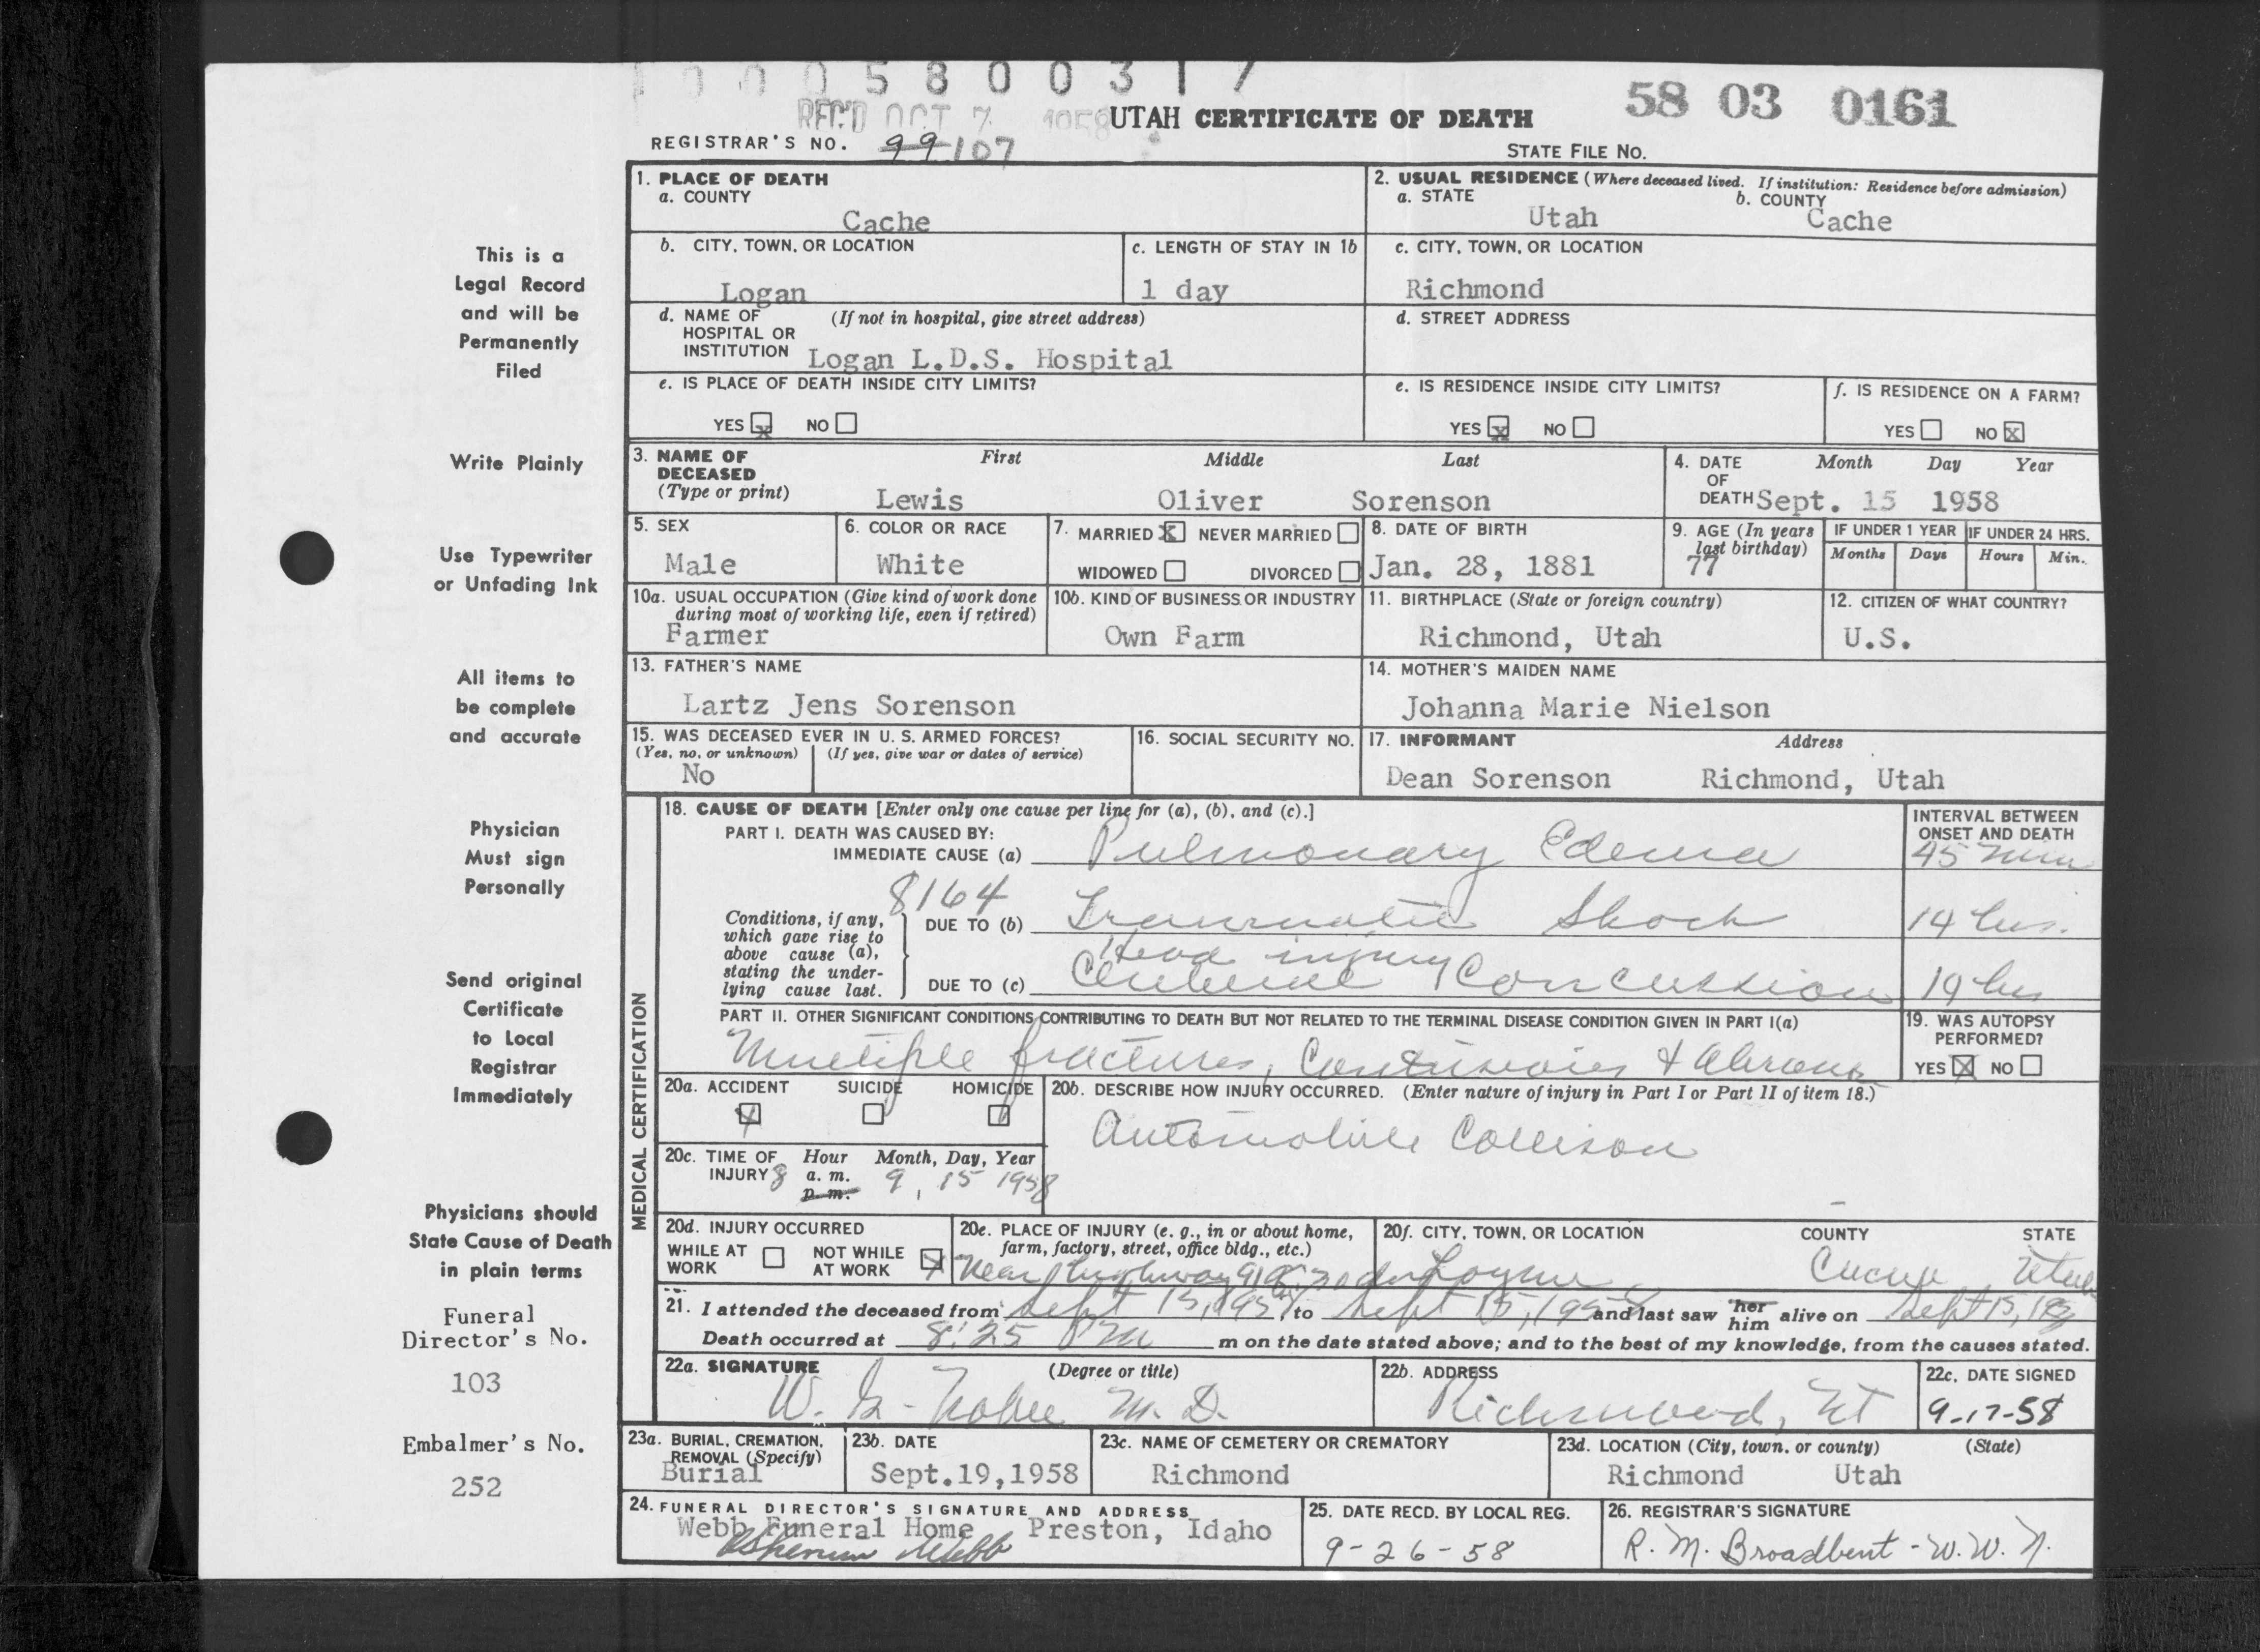 0005800317
REC'D OCT 7 1958 UTAH CERTIFICATE OF DEATH 58 03 0161
REGISTRAR'S NO. 99 107 STATE FILE No.
1. PLACE OF DEATH
a. COUNTY
Cache
2. USUAL RESIDENCE (Where deceased lived. If institution: Residence before admission)
a. STATE Utah b. COUNTY Cache
b. CITY, TOWN, OR LOCATION
Logan
c. LENGTH OF STAY IN 1b
1 day
c. CITY, TOWN, OR LOCATION
Richmond
d. NAME OF HOSPITAL OR INSTITUTION (If not in hospital, give street address)
Logan L.D.S. Hospital
d. STREET ADDRESS
e. IS PLACE OF DEATH INSIDE CITY LIMITS?
YES x NO
e. IS RESIDENCE INSIDE CITY LIMITS?
YES x NO
f. IS RESIDENCE ON A FARM?
YES NO x
3. NAME OF DECEASED (Type or print) First Middle Last
Lewis Oliver Sorenson
4. DATE OF DEATH Month Day Year
Sept. 15 1958
5. SEX
Male
6. COLOR OR RACE
White
7. MARRIED x NEVER MARRIED
WIDOWED DIVORCED
8. DATE OF BIRTH
Jan. 28, 1881
9. AGE (In years last birthday)
77
IF UNDER 1 YEAR
Months Days
IF UNDER 24 HRS.
Hours Min.
10a. USUAL OCCUPATION (Give kind of work done during most of working life, even if retired)
Farmer
10b. KIND OF BUSINESS OR INDUSTRY
Own Farm
11. BIRTHPLACE (State or foreign country)
Richmond, Utah
12. CITIZEN OF WHAT COUNTRY?
U.S.
13. FATHER'S NAME
Lartz Jens Sorenson
14. MOTHER'S MAIDEN NAME
Johanna Marie Nielson
15. WAS DECEASED EVER IN U. S. ARMED FORCES?
(Yes, no, or unknown) (If yes, give war or dates of service)
No
16. SOCIAL SECURITY NO.
17. INFORMANT Address
Dean Sorenson Richmond, Utah
MEDICAL CERTIFICATION
18. CAUSE OF DEATH [Enter only one cause per line for (a), (b), and (c).]
PART I. DEATH WAS CAUSED BY:
IMMEDIATE CAUSE (a) Pulmonary Edema
INTERVAL BETWEEN ONSET AND DEATH
45 min
8164
Conditions, if any, which gave rise to above cause (a), stating the underlying cause last.
DUE TO (b) Traumatic Shock 14 hrs.
Head injury
DUE TO (c) Concussion 19 hrs
PART II. OTHER SIGNIFICANT CONDITIONS CONTRIBUTING TO DEATH BUT NOT RELATED TO THE TERMINAL DISEASE CONDITION GIVEN IN PART I(a)
Multiple fractures,
19. WAS AUTOPSY PERFORMED?
YES x NO
20a. ACCIDENT x SUICIDE HOMICIDE
20b. DESCRIBE HOW INJURY OCCURRED. (Enter nature of injury in Part I or Part II of item 18.)
Automobile Collison
20c. TIME OF INJURY Hour Month, Day, Year
8 a. m. p. m. 9, 15 1958
20d. INJURY OCCURRED
WHILE AT WORK NOT WHILE AT WORK x
20e. PLACE OF INJURY (e. g., in or about home, farm, factory, street, office bldg., etc.)
Near highway 91
20f. CITY, TOWN, OR LOCATION COUNTY STATE
Utah
21. I attended the deceased from Sept 15, 1958, to Sept 15, 1958 and last saw her him alive on Sept 15,
Death occurred at 8:25 PM m on the date stated above; and to the best of my knowledge, from the causes stated.
22a. SIGNATURE (Degree or title)
W. M. D.
22b. ADDRESS
Richmond, Ut
22c. DATE SIGNED
9-17-58
23a. BURIAL, CREMATION, REMOVAL (Specify)
Burial
23b. DATE
Sept.19,1958
23c. NAME OF CEMETERY OR CREMATORY
Richmond
23d. LOCATION (City, town, or county) (State)
Richmond Utah
24. FUNERAL DIRECTOR'S SIGNATURE AND ADDRESS
Webb Funeral Home Preston, Idaho
Webb
25. DATE RECD. BY LOCAL REG.
9-26-58
26. REGISTRAR'S SIGNATURE
R. M. Broadbent - W. W. N.
This is a
Legal Record
and will be
Permanently
Filed
Write Plainly
Use Typewriter
or Unfading Ink
All items to
be complete
and accurate
Physician
Must sign
Personally
Send original
Certificate
to Local
Registrar
Immediately
Physicians should
State Cause of Death
in plain terms
Funeral
Director's No.
103
Embalmer's No.
252